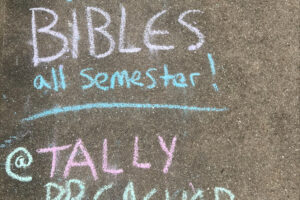 BIBLES
all semester!
@TALLY
PREACHER